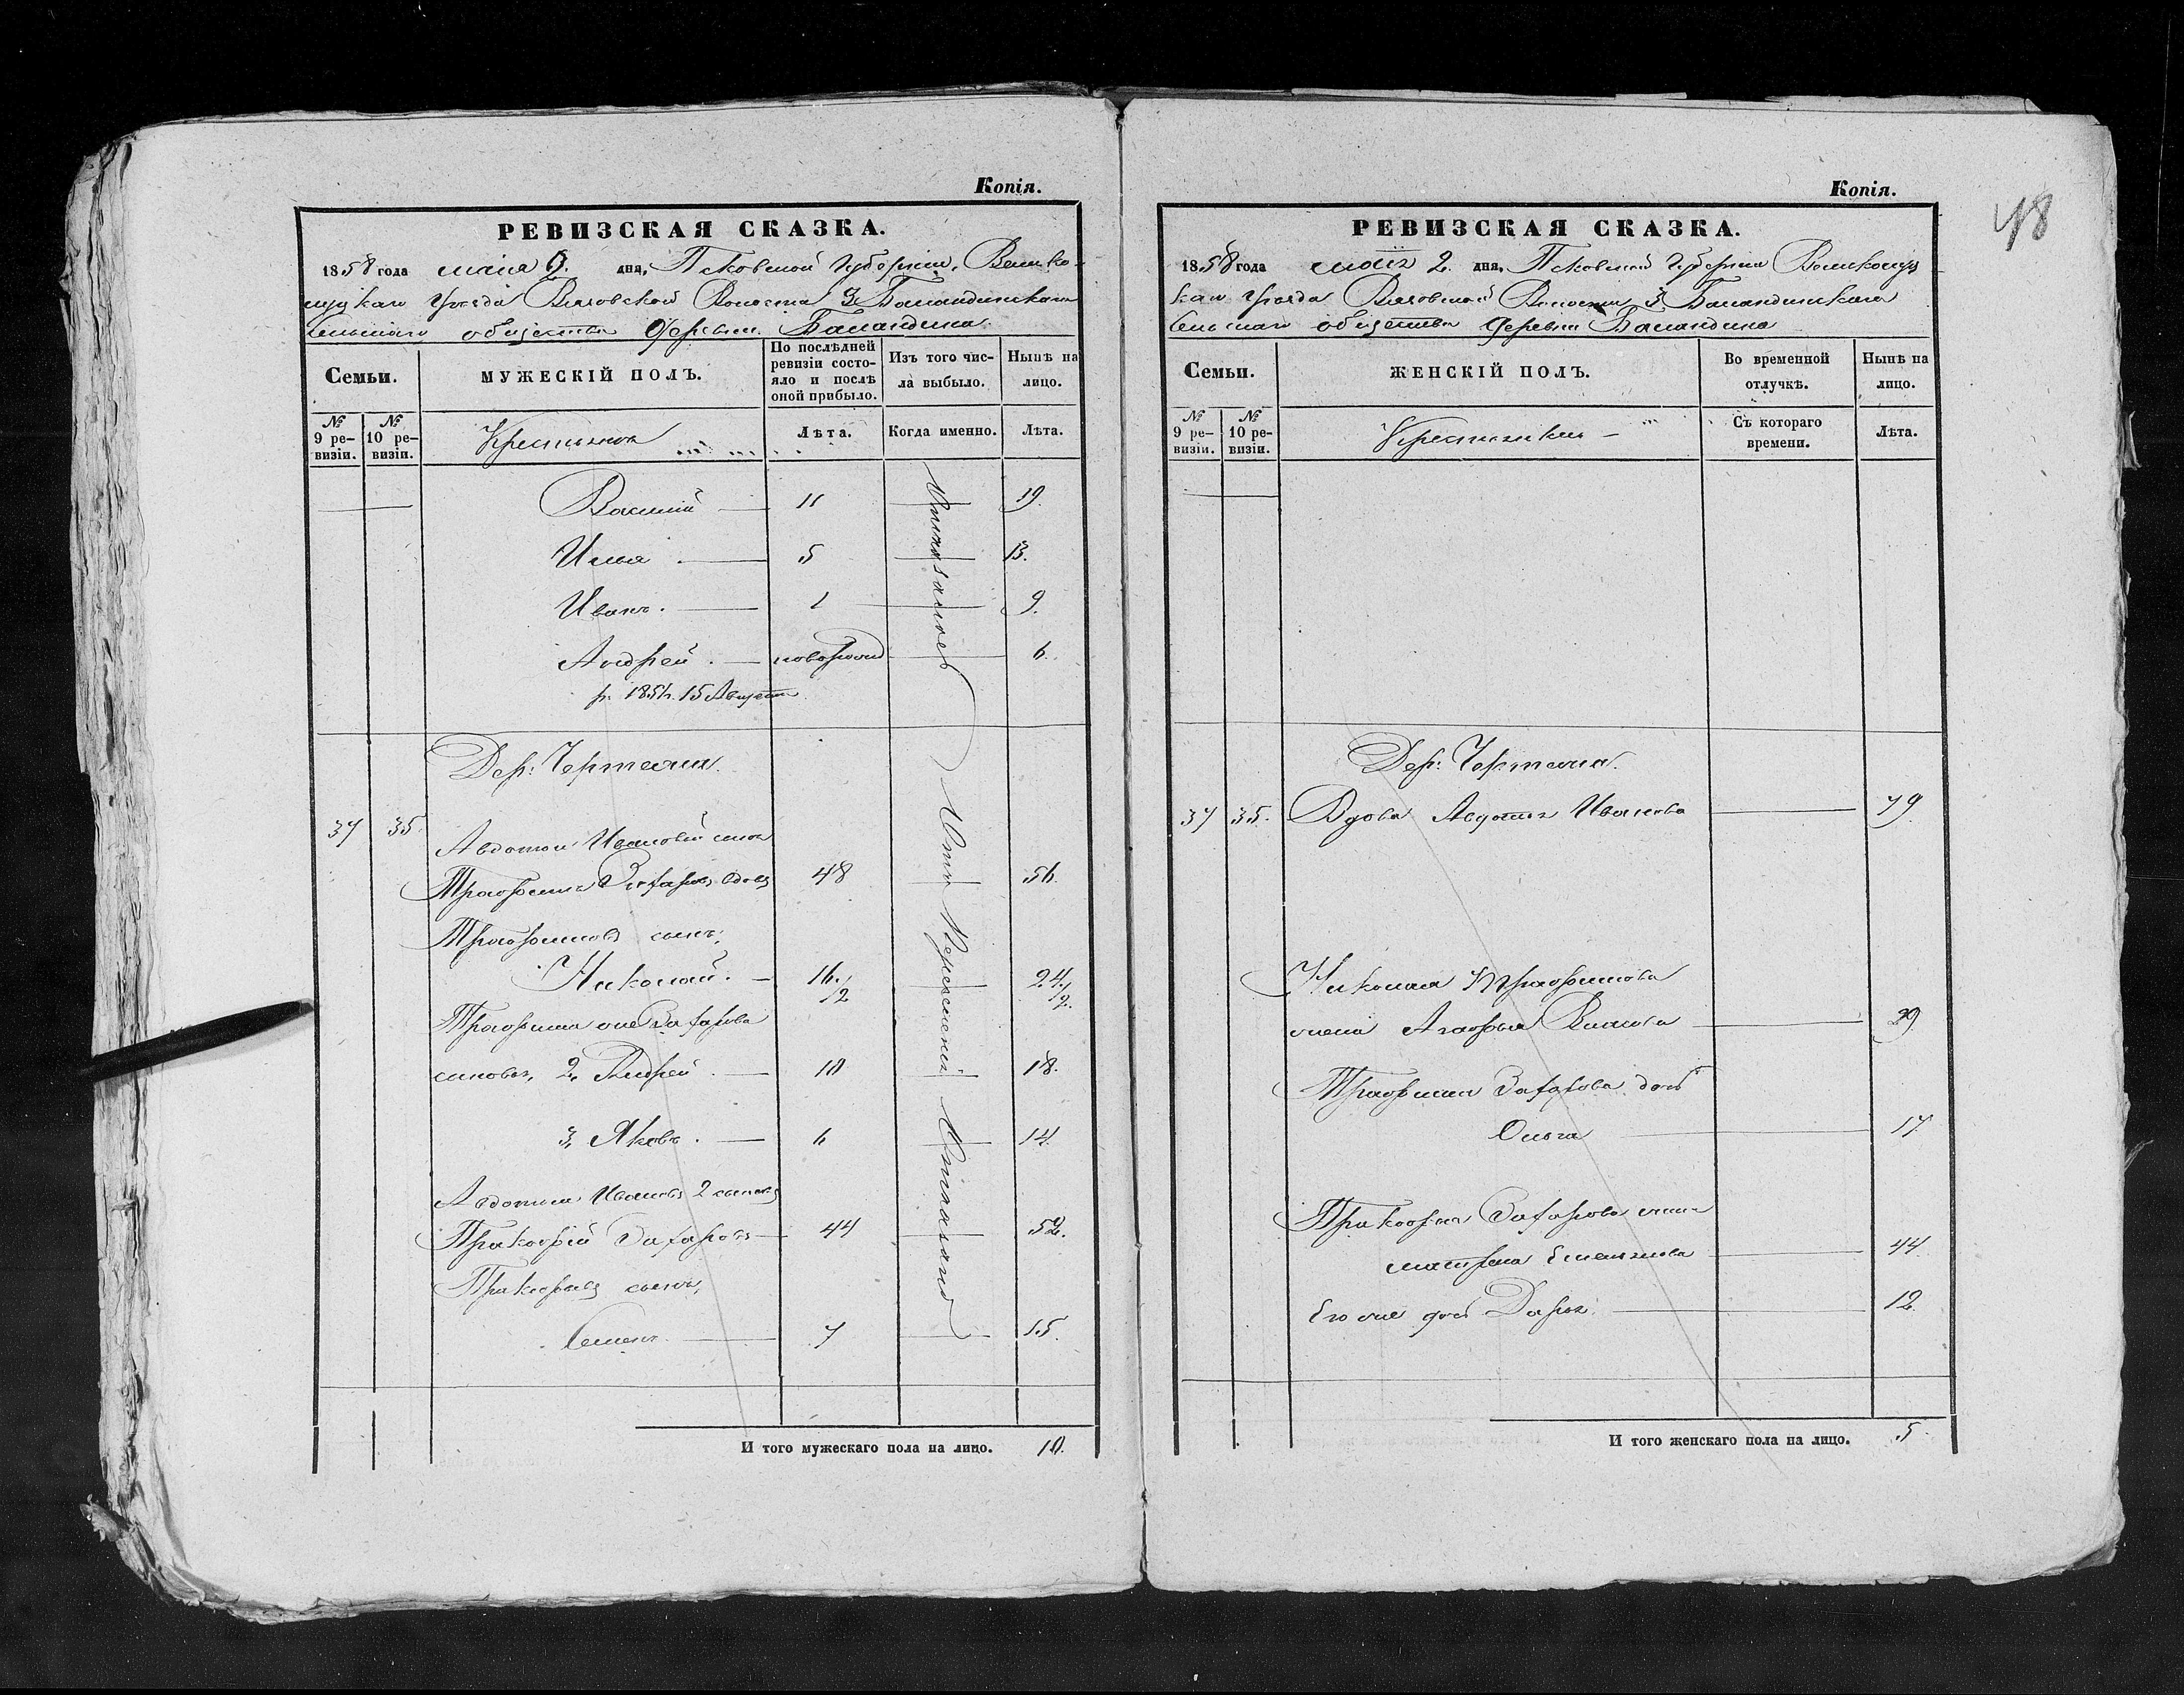 Копія.
РЕВИЗСКАЯ СКАЗКА.
1858 года маія 2. дня, Псковской Губерніи, Велико-
луцкаго уѣзда Вязовской Волости 3 Баландинскаго
сельскаго общества деревни Баландина.
Семьи.
МУЖЕСКІЙ ПОЛЪ.
По послѣдней ревизіи состо-яло и послѣ оной прибыло.
Изъ того чис-ла выбыло.
Нынѣ на лицо.
№ 9 ре-визіи.
№ 10 ре-визіи.
Крестьяне
Лѣта.
Когда именно.
Лѣта.
Василій 11 19.
Илья 5 13.
Иванъ. 1 9.
Андрей. новорожд 6.
р. 1851 г. 15 Августа
Дер:
37 35. Авдотьи Ивановой сынъ
Трофимъ Захаровъ вдовъ 48 56.
Трофимовъ сынъ,
Николай. 16 1/2 24 1/2.
Трофима же Захарова
сыновья, 2, Андрей 10 18.
3, Яковъ. 6 14.
Авдотьи Ивановой 2 сынъ
Пракофій Захаровъ 44 52.
Пракофьевъ сынъ,
Семенъ 7 15.
И того мужескаго пола на лицо. 10.
48
Копія.
РЕВИЗСКАЯ СКАЗКА.
1858 года маія 2. дня, Псковской Губерніи Великолуц
каго уѣзда Вязовской Волости 3 Баландинскаго
сельскаго общества деревни Баландина
Семьи.
ЖЕНСКІЙ ПОЛЪ.
Во временной отлучкѣ.
Нынѣ на лицо.
№ 9 ре-визіи.
№ 10 ре-визіи.
Крестьянки
Съ котораго времени.
Лѣта.
Дер:
37 35. Вдова Авдотья Иванова 79
Николая Трофимова
жена Агафья Власова 29
Трофима Захарова дочь
Ольга 17
Пракофья Захарова жена
Матрена Емельянова 44
Его же дочь Дарья. 12
И того женскаго пола на лицо. 5.